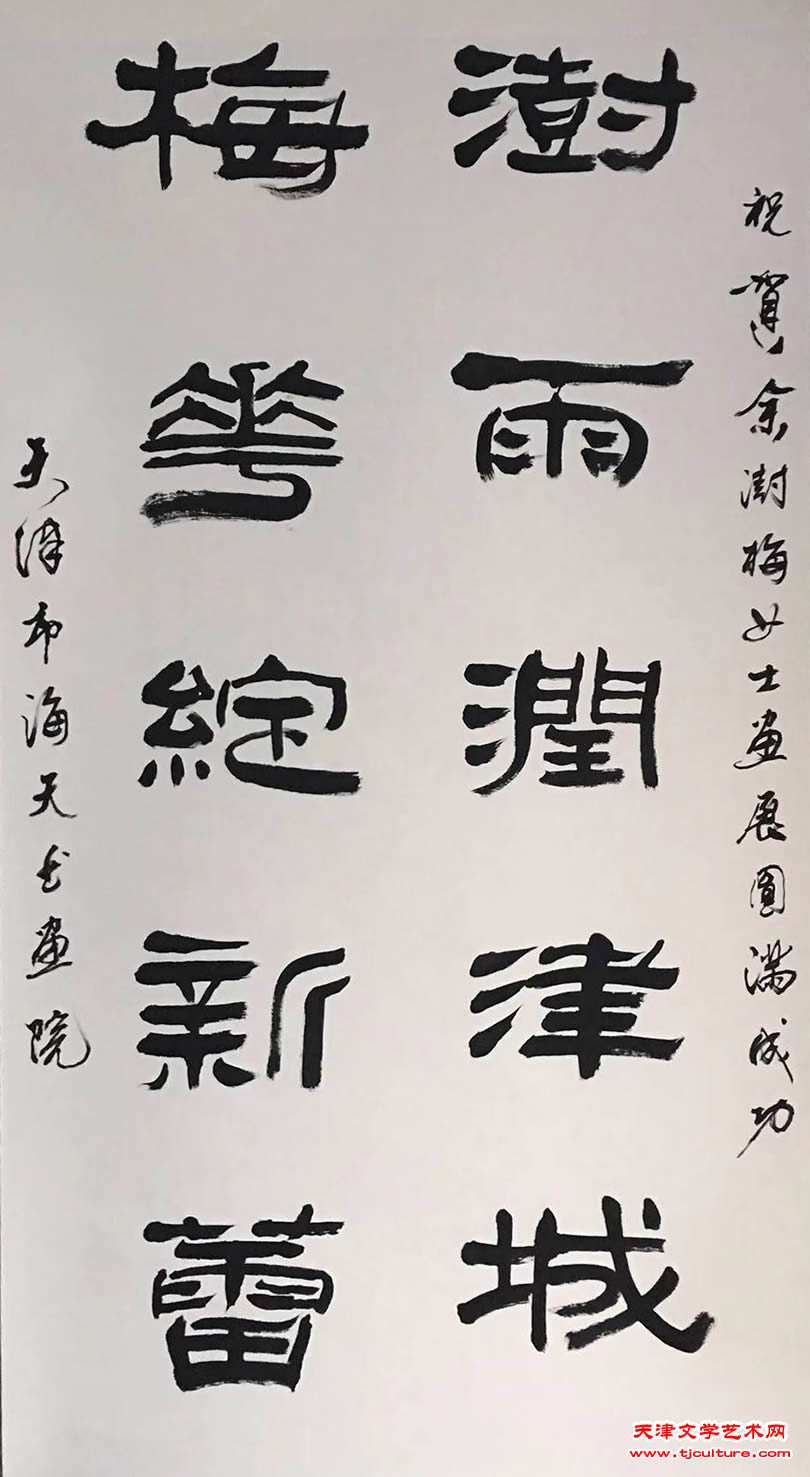 祝賀余澍梅女士畫展圓滿成功
澍雨潤津城
梅華綻新蕾
天津市海天书畫院
天津文学艺术网
www.tjculture.com